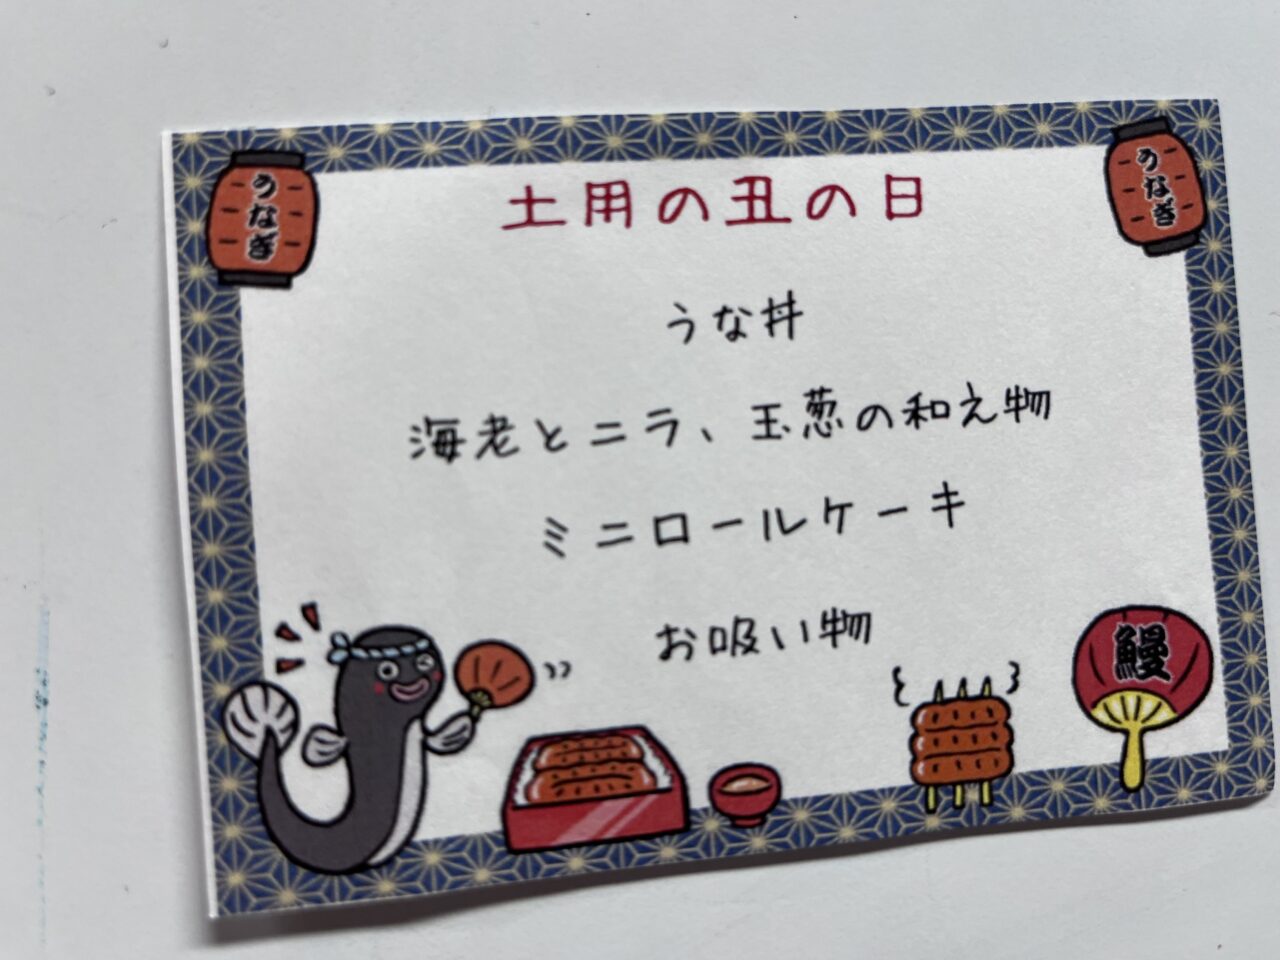 うなぎ
うなぎ
土用の丑の日
うな丼
海老とニラ、玉葱の和え物
ミニロールケーキ
お吸い物
鰻